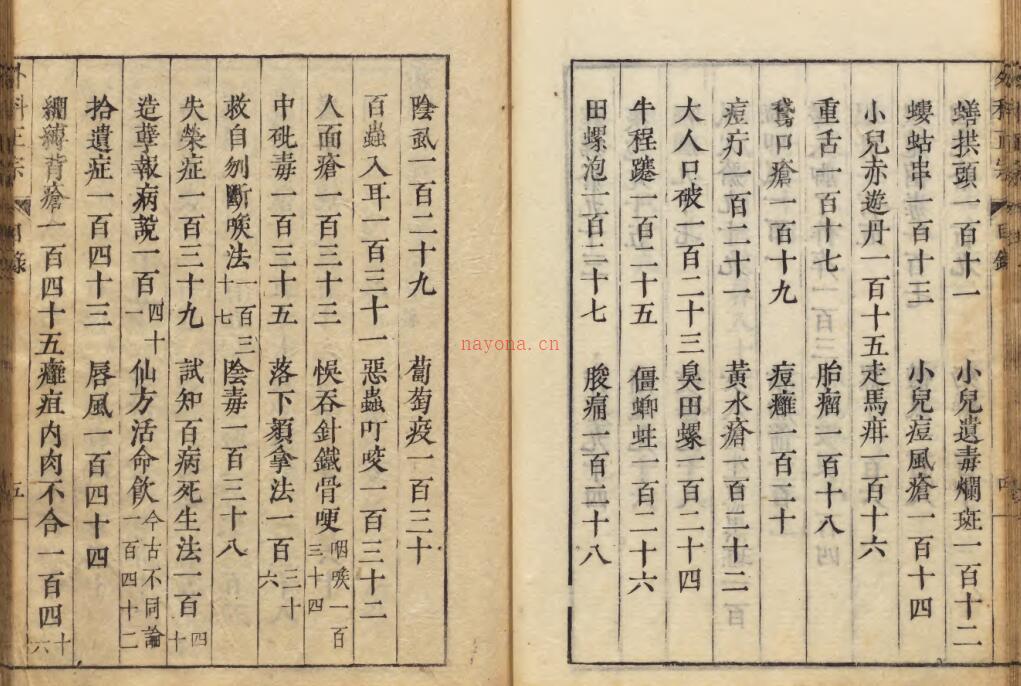 蟮拱頭一百十一　小兒遺毒爛斑一百十二
螻蛄串一百十三　小兒痘風瘡一百十四
小兒赤遊丹一百十五走馬疳一百十六
重舌一百十七　胎瘤一百十八
鵞口瘡一百十九　痘癰一百二十
痘疔一百二十一　黃水瘡一百二十二
大人口破一百二十三臭田螺一百二十四
牛程蹇一百二十五　僵螂蛀一百二十六
田螺泡一百二十七　脧痛一百二十八
陰虱一百二十九　葡萄疫一百三十
百蟲入耳一百三十一惡蟲叮咬一百三十二
人面瘡一百三十三　悞吞針鐵骨哽咽喉一百三十四
中砒毒一百三十五　落下頦拿法一百三十六
救自刎斷喉法一百三十七陰毒一百三十八
失榮症一百三十九　試知百病死生法一百四十
造孽報病說一百四十一仙方活命飲今古不同論一百四十二
拾遺症一百四十三　唇風一百四十四
綑縛背瘡一百四十五癰疽内肉不合一百四十六
外科正宗　目錄　五
外科正宗　目錄
nayona.cn